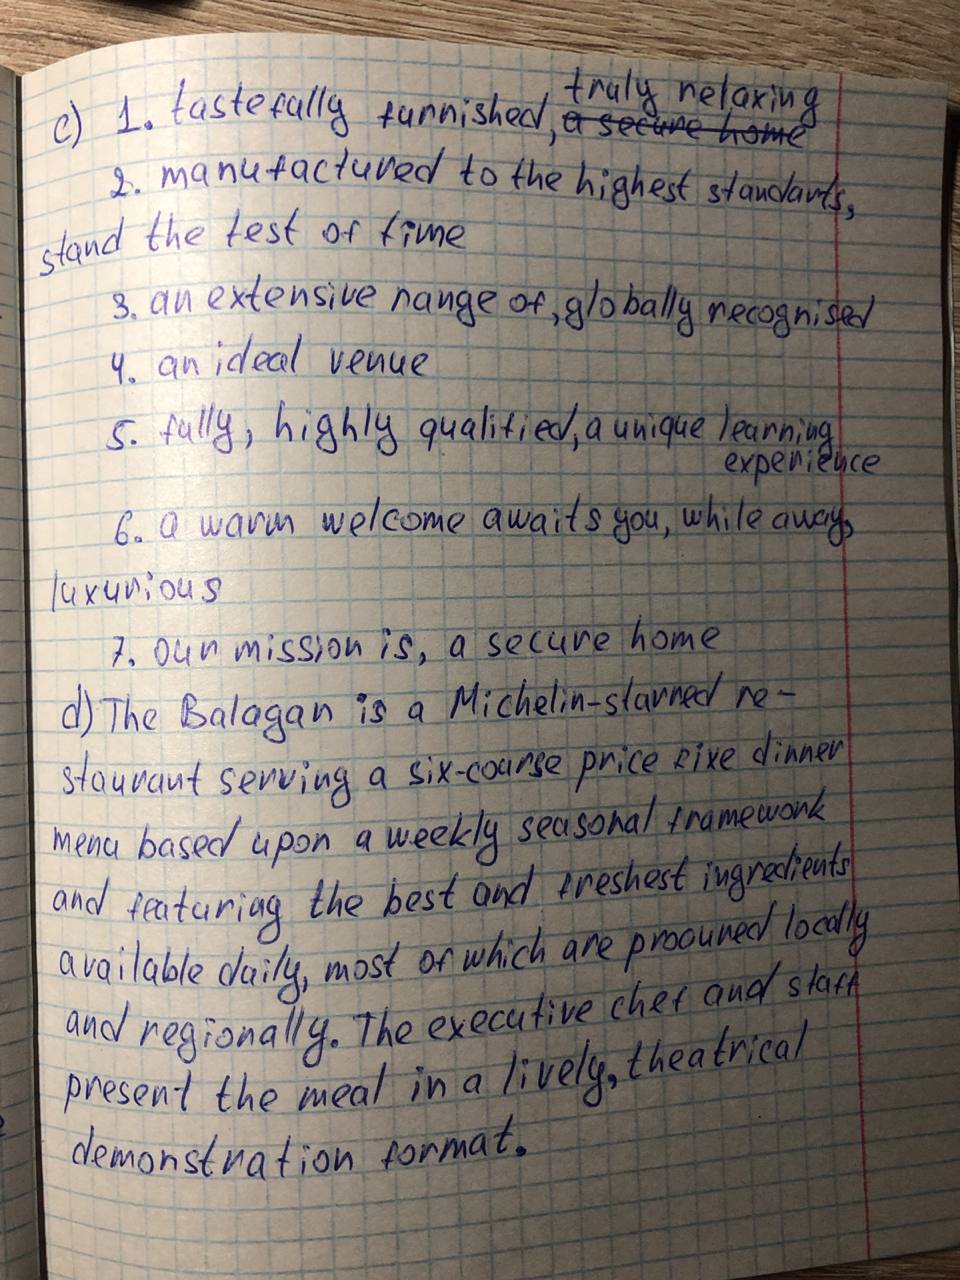 truly relaxing
c) 1. tastefully furnished, a secure home
2. manufactured to the highest standarts,
stand the test of time
3. an extensive range of, globally recognised
4. an ideal venue
5. fully, highly qualified, a unique learning
experience
6. a warm welcome awaits you, while away,
luxurious
7. our mission is, a secure home
d) The Balagan is a Michelin-starred re-
staurant serving a six-course price fixe dinner
menu based upon a weekly seasonal framework
and featuring the best and freshest ingredients
available daily, most of which are procured locally
and regionally. The executive chef and staff
present the meal in a lively, theatrical
demonstration format.